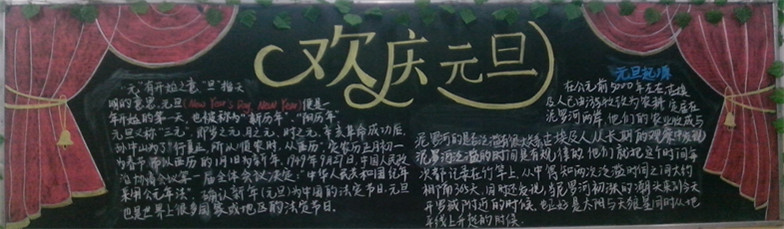 欢庆元旦
"元"有开始之意,"旦"指天
明的意思。元旦(New Year's Day, New Year)便是一
年开始的第一天,也被称为"新历年""阳历年"
元旦又称"三元",即岁之元、月之元、时之元。辛亥革命成功后,
孙中山为了"行夏正,所以顺农时,从西历,
定农历正月初一
为春节,而以西历的1月1日为新年。1949年9月27日,中国人民政
治协商会议第一届全体会议决定:"中华人民共和国纪年
采用公元年法",确认新年(元旦)为中国的法定节日。元旦
也是世界上很多国家或地区的法定节日。
元旦起源
在公元前5000年左右
及人已由游牧改为农耕,定居在
泥罗河两岸,他们的农业收成与
泥罗河的是否泛滥有很大关
埃及人从长期的观察中发现
泥罗河泛滥的时间是有规律的,他们就把这个时间每
次都记录在竹竿上,从中得知两次泛滥时间之间大约
相隔365天,同时还发现,当尼罗河初涨的潮头来到今天
开罗城附近的时候,也正好是太阳与天狼星同时从地
平线上升起的时候